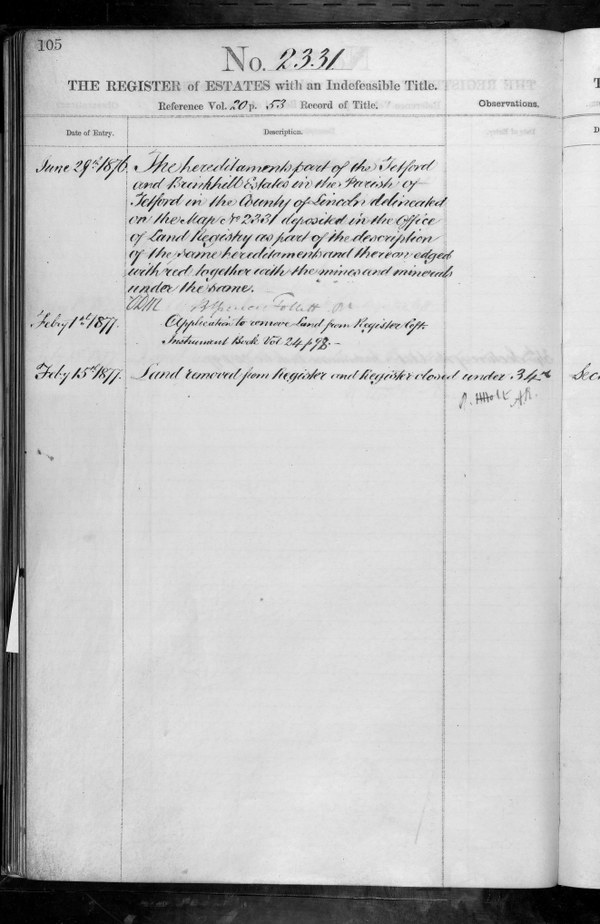 105
No. 2331
THE REGISTER of ESTATES with an Indefeasible Title.
Reference Vol. 20 p. 53 Record of Title.
Observations.
Date of Entry.
Description.
June 29th 1876. The hereditaments part of the Tetford
and Brinkhill Estates in the Parish of
Tetford in the County of Lincoln delineated
on the Map No 2331 deposited in the Office
of Land Registry as part of the description
of the same hereditaments and thereon edged
with red together with the mines and minerals
under the same.
Follett
Febry 1st 1877. Application to remove Land from Register Coft.
Instrument Book Vol 24 p 98. -
Feby 15th 1877. Land removed from Register and Register closed under 34th Sec
R. Holt A.R.